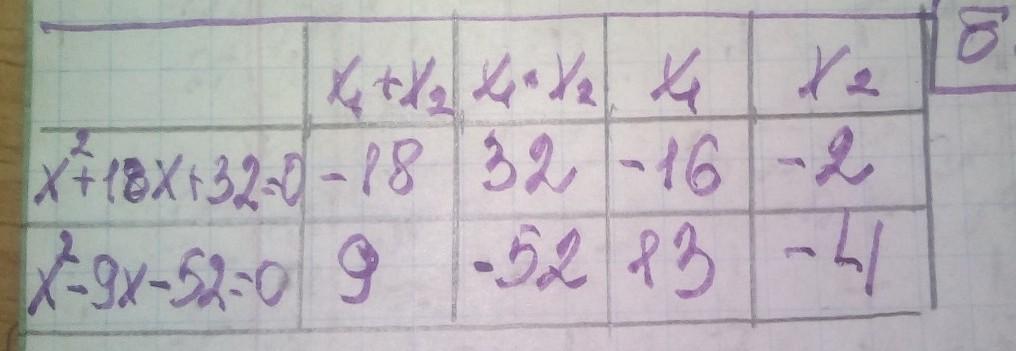 x₁+x₂ x₁·x₂ x₁ x₂
x²+18x+32=0 -18 32 -16 -2
x²-9x-52=0 9 -52 13 -4